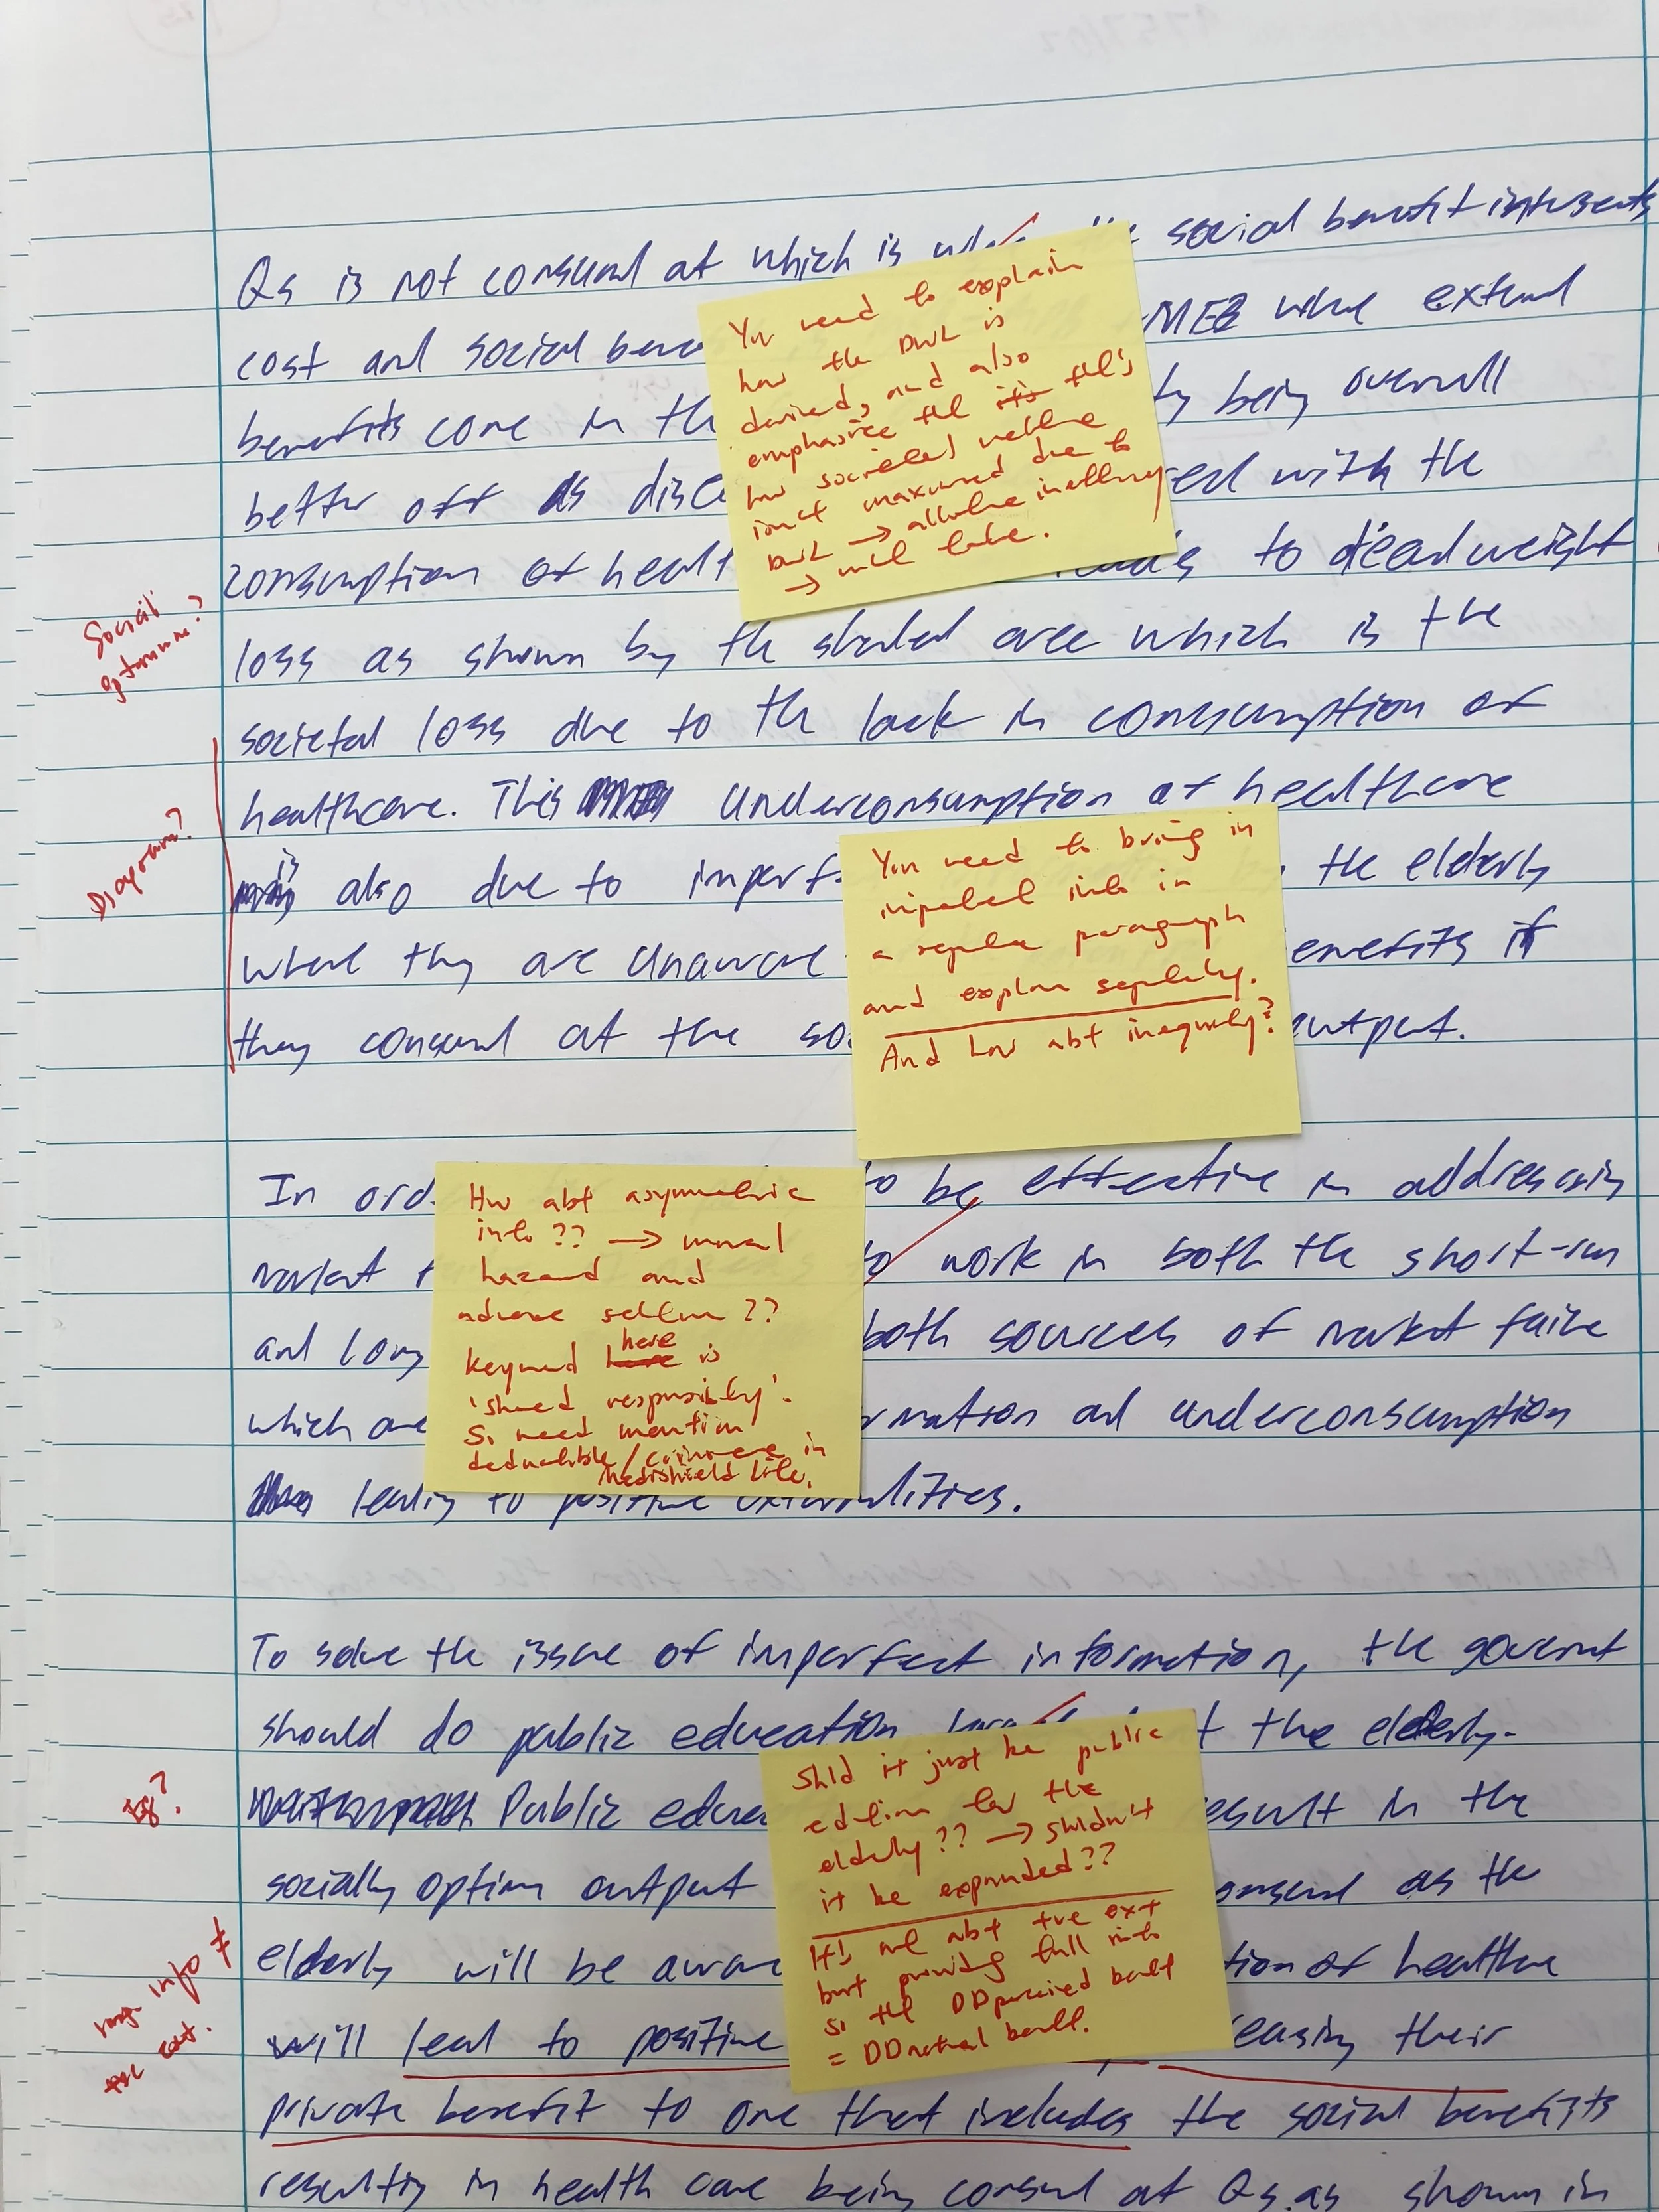 Qs is not consumed at which is social benefit intersects
cost and social MEB where extend
benefits come in the being overall
better off as with the
consumption of to deadweight
loss as shown by the shaded area which is the
societal loss due to the lack in consumption of
healthcare. This underconsumption of healthcare
is also due to the elderly
where they are unaware benefits if
they consumd at the output.
You need to explain
how the DWL is
derived, and also
emphasise tht tht's
how societal welfare
isn't maximised due to
DWL → allocative inefficiency
→ mkt failure.
Social
optimum?
Diagram?
You need to bring in
imperfect info in
a separate paragraph
and explain separately.
And how abt inequity?
In to be effective in addressing
market to work in both the short-run
and long both sources of market failure
which are and underconsumption
leading to positive externalities.
How abt asymmetric
info?? → moral
hazard and
adverse selection??
keyword here is
'shared responsibility'.
So need mention
deductible/coinsurance in
Medishield Life.
To solve the issue of imperfect information, the goverment
should do public education the elderly.
Public result in the
socially optimum output as the
elderly will be aware of healthcare
will lead to positive their
private benefit to one that includes the social benefits
resulting in health care being consumd at Qs. as shown in
Shld it just be public
edution for the
elderly?? → shldn't
it be expanded??
It's not abt +ve ext
but providing full info
so tht DD perceived benefit
= DD actual benefit.
Eg?
info ≠
+ve ext.